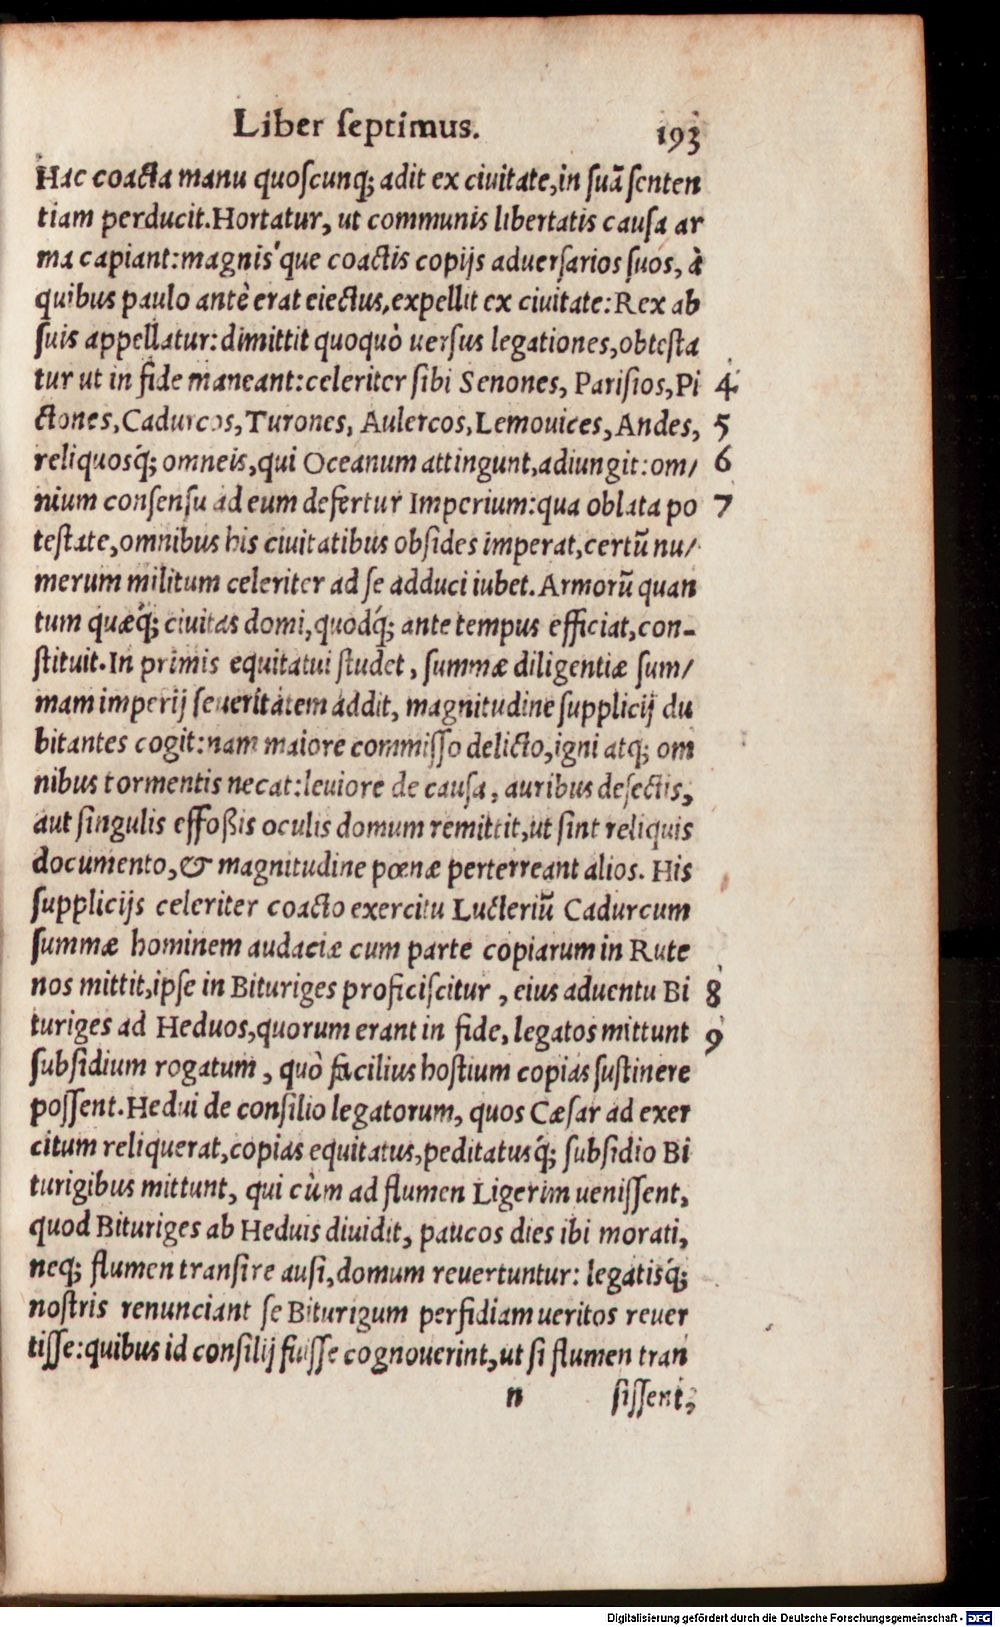 Liber ſeptimus. 193
Hac coacta manu quoſcunq; adit ex ciuitate, in ſuã ſenten
tiam perducit. Hortatur, ut communis libertatis cauſa ar
ma capiant: magnis´que coactis copijs aduerſarios ſuos, à
quibus paulo antè erat eiectus, expellit ex ciuitate: Rex ab
ſuis appellatur: dimittit quoquò uerſus legationes, obteſta
tur ut in fide maneant: celeriter ſibi Senones, Pariſios, Pi 4
ctones, Cadurcos, Turones, Aulercos, Lemouices, Andes, 5
reliquosq́; omneis, qui Oceanum attingunt, adiungit: om/ 6
nium conſenſu ad eum defertur Imperium: qua oblata po 7
teſtate, omnibus his ciuitatibus obſides imperat, certũ nu/
merum militum celeriter ad ſe adduci iubet. Armorũ quan
tum quæq́; ciuitas domi, quodq́; ante tempus efficiat, con-
ſtituit. In primis equitatui ſtudet, ſummæ diligentiæ ſum/
mam imperij ſeueritatem addit, magnitudine ſupplicij du
bitantes cogit: nam maiore commiſſo delicto, igni atq; om
nibus tormentis necat: leuiore de cauſa, auribus deſectis,
aut ſingulis effoßis oculis domum remittit, ut ſint reliquis
documento, & magnitudine pœnæ perterreant alios. His
ſupplicijs celeriter coacto exercitu Lucteriũ Cadurcum
ſummæ hominem audaciæ cum parte copiarum in Rute
nos mittit, ipſe in Bituriges proficiſcitur, eius aduentu Bi 8
turiges ad Heduos, quorum erant in fide, legatos mittunt 9
ſubſidium rogatum, quò facilius hoſtium copias ſuſtinere
poſſent. Hedui de conſilio legatorum, quos Cæſar ad exer
citum reliquerat, copias equitatus, peditatusq́; ſubſidio Bi
turigibus mittunt, qui cùm ad flumen Ligerim ueniſſent,
quod Bituriges ab Heduis diuidit, paucos dies ibi morati,
neq; flumen tranſire auſi, domum reuertuntur: legatisq́;
noſtris renunciant ſe Biturigum perfidiam ueritos reuer
tiſſe: quibus id conſilij fuiſſe cognouerint, ut ſi flumen tran
n ſiſſent,
Digitalisierung gefördert durch die Deutsche Forschungsgemeinschaft - DFG